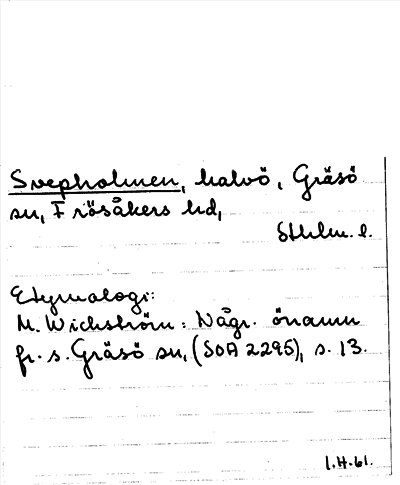 Svepholmen, halvö, Gräsö
sn, Frösåkers hd,
Sthlm. l.
Etymologi:
M. Wickström: Någr. önamn
fr. s. Gräsö sn, (SOA 2295), s. 13.
I.H.61.